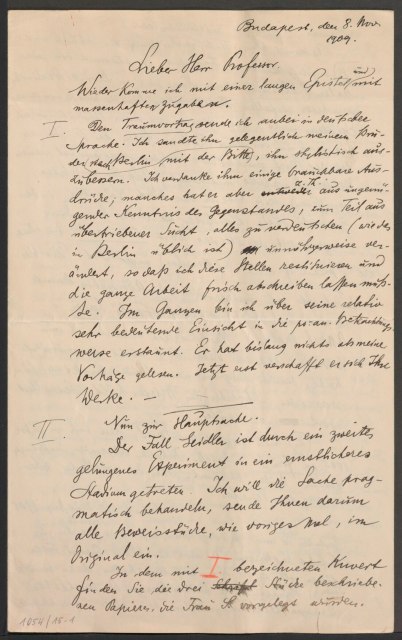 Budapest, den 8. Nov.
1909.
Lieber Herr Professor.
Wieder komme ich mit einer langen Epistel und mit
massenhaften zugaben.
I. Den Traumvortrag sende ich anbei in deutscher
Sprache. Ich sandte ihn gelegentlich meinem Bru-
der nach Berlin (mit der Bitte), ihn stylistisch aus-
zubessern. Ich verdanke ihm einige brauchbare Aus-
drücke; manches hat er aber z. Th. aus ungenü-
gender Kenntnis des Gegenstandes, zum Teil aus
übertriebener Sucht, alles zu verdeutschen (wie das
in Berlin üblich ist) unnötigerweise ver-
ändert, so daß ich diese Stellen restituieren und
die ganze Arbeit frisch abschreiben lassen muß-
te. Im Ganzen bin ich über seine relativ
sehr bedeutende Einsicht in die ps.-an. Betrachtungs-
weise erstaunt. Er hat bislang nichts als meine
Vorträge gelesen. Jetzt erst verschafft er sich Ihre
Werke. —
II. Nun zur Hauptsache.
Der Fall Seidler ist durch ein zweites
gelungenes Experiment in ein ernstlicheres
Stadium getreten. Ich will die Sache prag-
matisch behandeln, sende Ihnen darum
alle Beweisstücke, wie voriges Mal, im
Original ein.
In dem mit I bezeichneten Kuvert
finden Sie die drei Stücke beschriebe-
nen Papiers, die Frau S. vorgelegt wurden.
1054/15-1